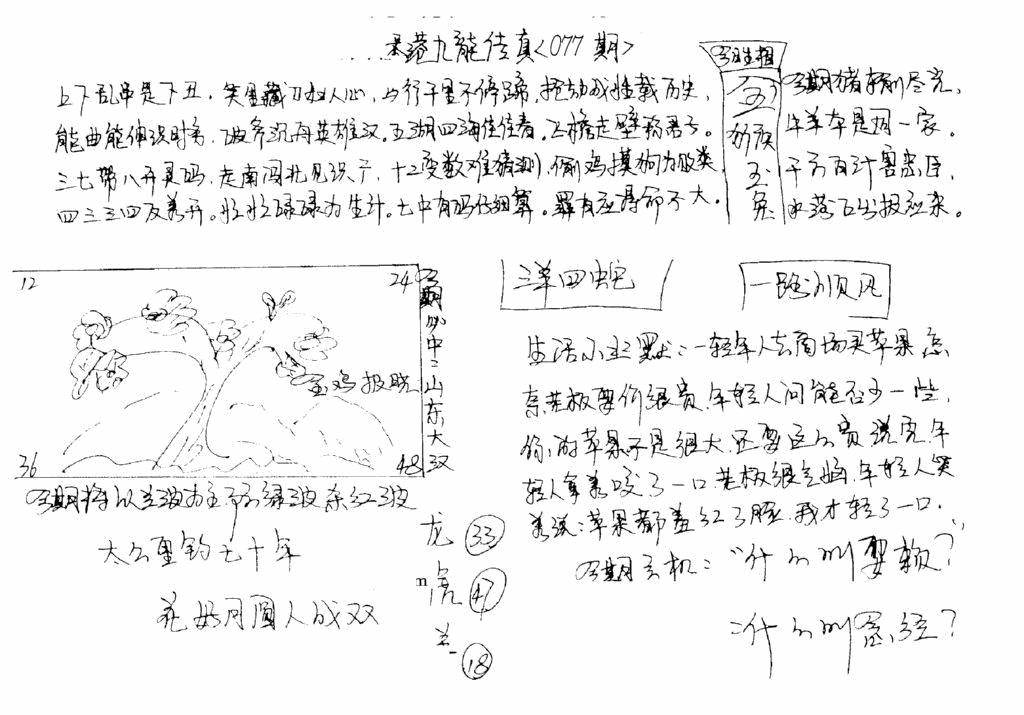 香港九龍传真<077期>
上下乱串是下丑，笑里藏刀 人心，日行千里不停蹄，
能曲能伸识时务， 沉舟英雄汉。五湖四海佳佳春。飞檐走壁称君子。
三七带八开灵码，走南闯北见识广，十二变数难猜测，偷鸡摸狗为败类，
四三三四及着开。忙忙碌碌为生计。七中有码仔细算。罪有应得命不大。
今期生相
五
玉
兔
今期猪 尽完，
牛羊本是同一家。
千方百计害忠臣，
水落石出报应来。
12
24
36
48
金鸡报晓
今期必中：山东大汉
三羊四蛇
一路顺风
生活小幽默：一轻年人去商场买苹果怎
奈老板要价很贵，年轻人问能否少一些，
你的苹果不是很大还要这么贵说完年
轻人拿着咬了一口老板很气恼，年轻人笑
着说：苹果都羞红了脸，我才轻了一口．
今期玄机：“什么叫耍赖？
：什么叫 ？
今期将以兰波为主 绿波 红波
太公垂钓七十年
花好月圆人成双
龙 33
虎 47
羊 18